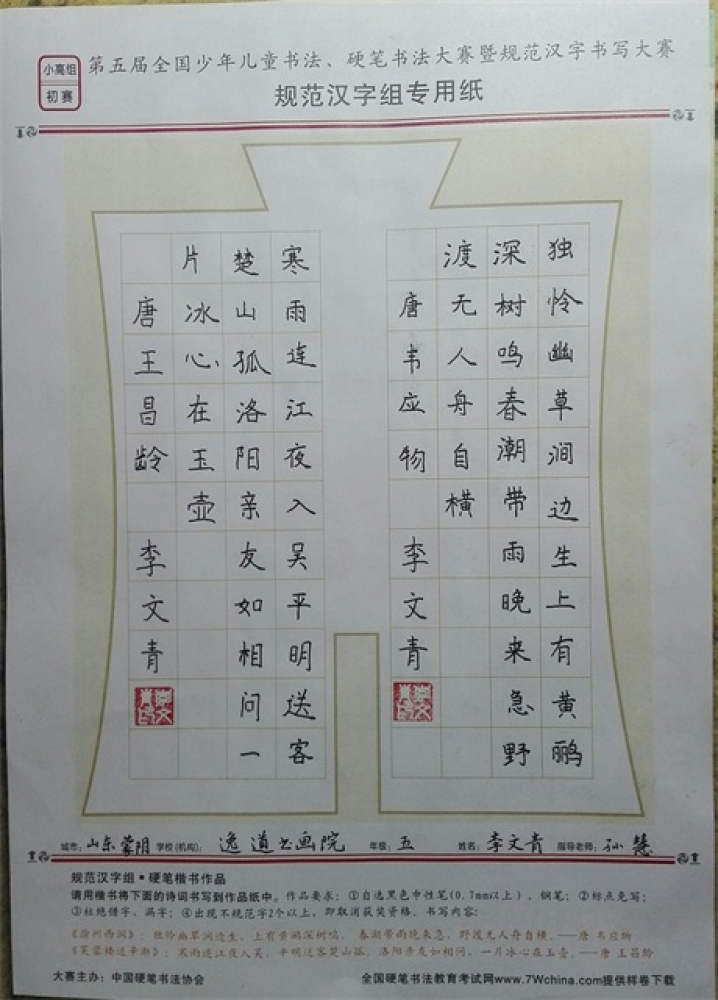 小高组
初赛
第五届全国少年儿童书法、硬笔书法大赛暨规范汉字书写大赛
规范汉字组专用纸
独怜幽草涧边生上有黄鹂
深树鸣春潮带雨晚来急野
渡无人舟自横
唐韦应物 李文青
寒雨连江夜入吴平明送客
楚山孤洛阳亲友如相问一
片冰心在玉壶
唐王昌龄 李文青
城市：山东蒙阴 学校(机构)：逸道书画院 年级：五 姓名：李文青 指导老师：孙慧
规范汉字组·硬笔楷书作品
请用楷书将下面的诗词书写到作品纸中。作品要求：①自选黑色中性笔(0.7mm以上)、钢笔；②标点免写；
③杜绝错字、漏字；④出现不规范字2个以上，即取消获奖资格。书写内容：
《滁州西涧》：独怜幽草涧边生，上有黄鹂深树鸣。春潮带雨晚来急，野渡无人舟自横。——唐 韦应物
《芙蓉楼送辛渐》：寒雨连江夜入吴，平明送客楚山孤。洛阳亲友如相问，一片冰心在玉壶。——唐 王昌龄
大赛主办：中国硬笔书法协会 全国硬笔书法教育考试网www.7Wchina.com提供样卷下载